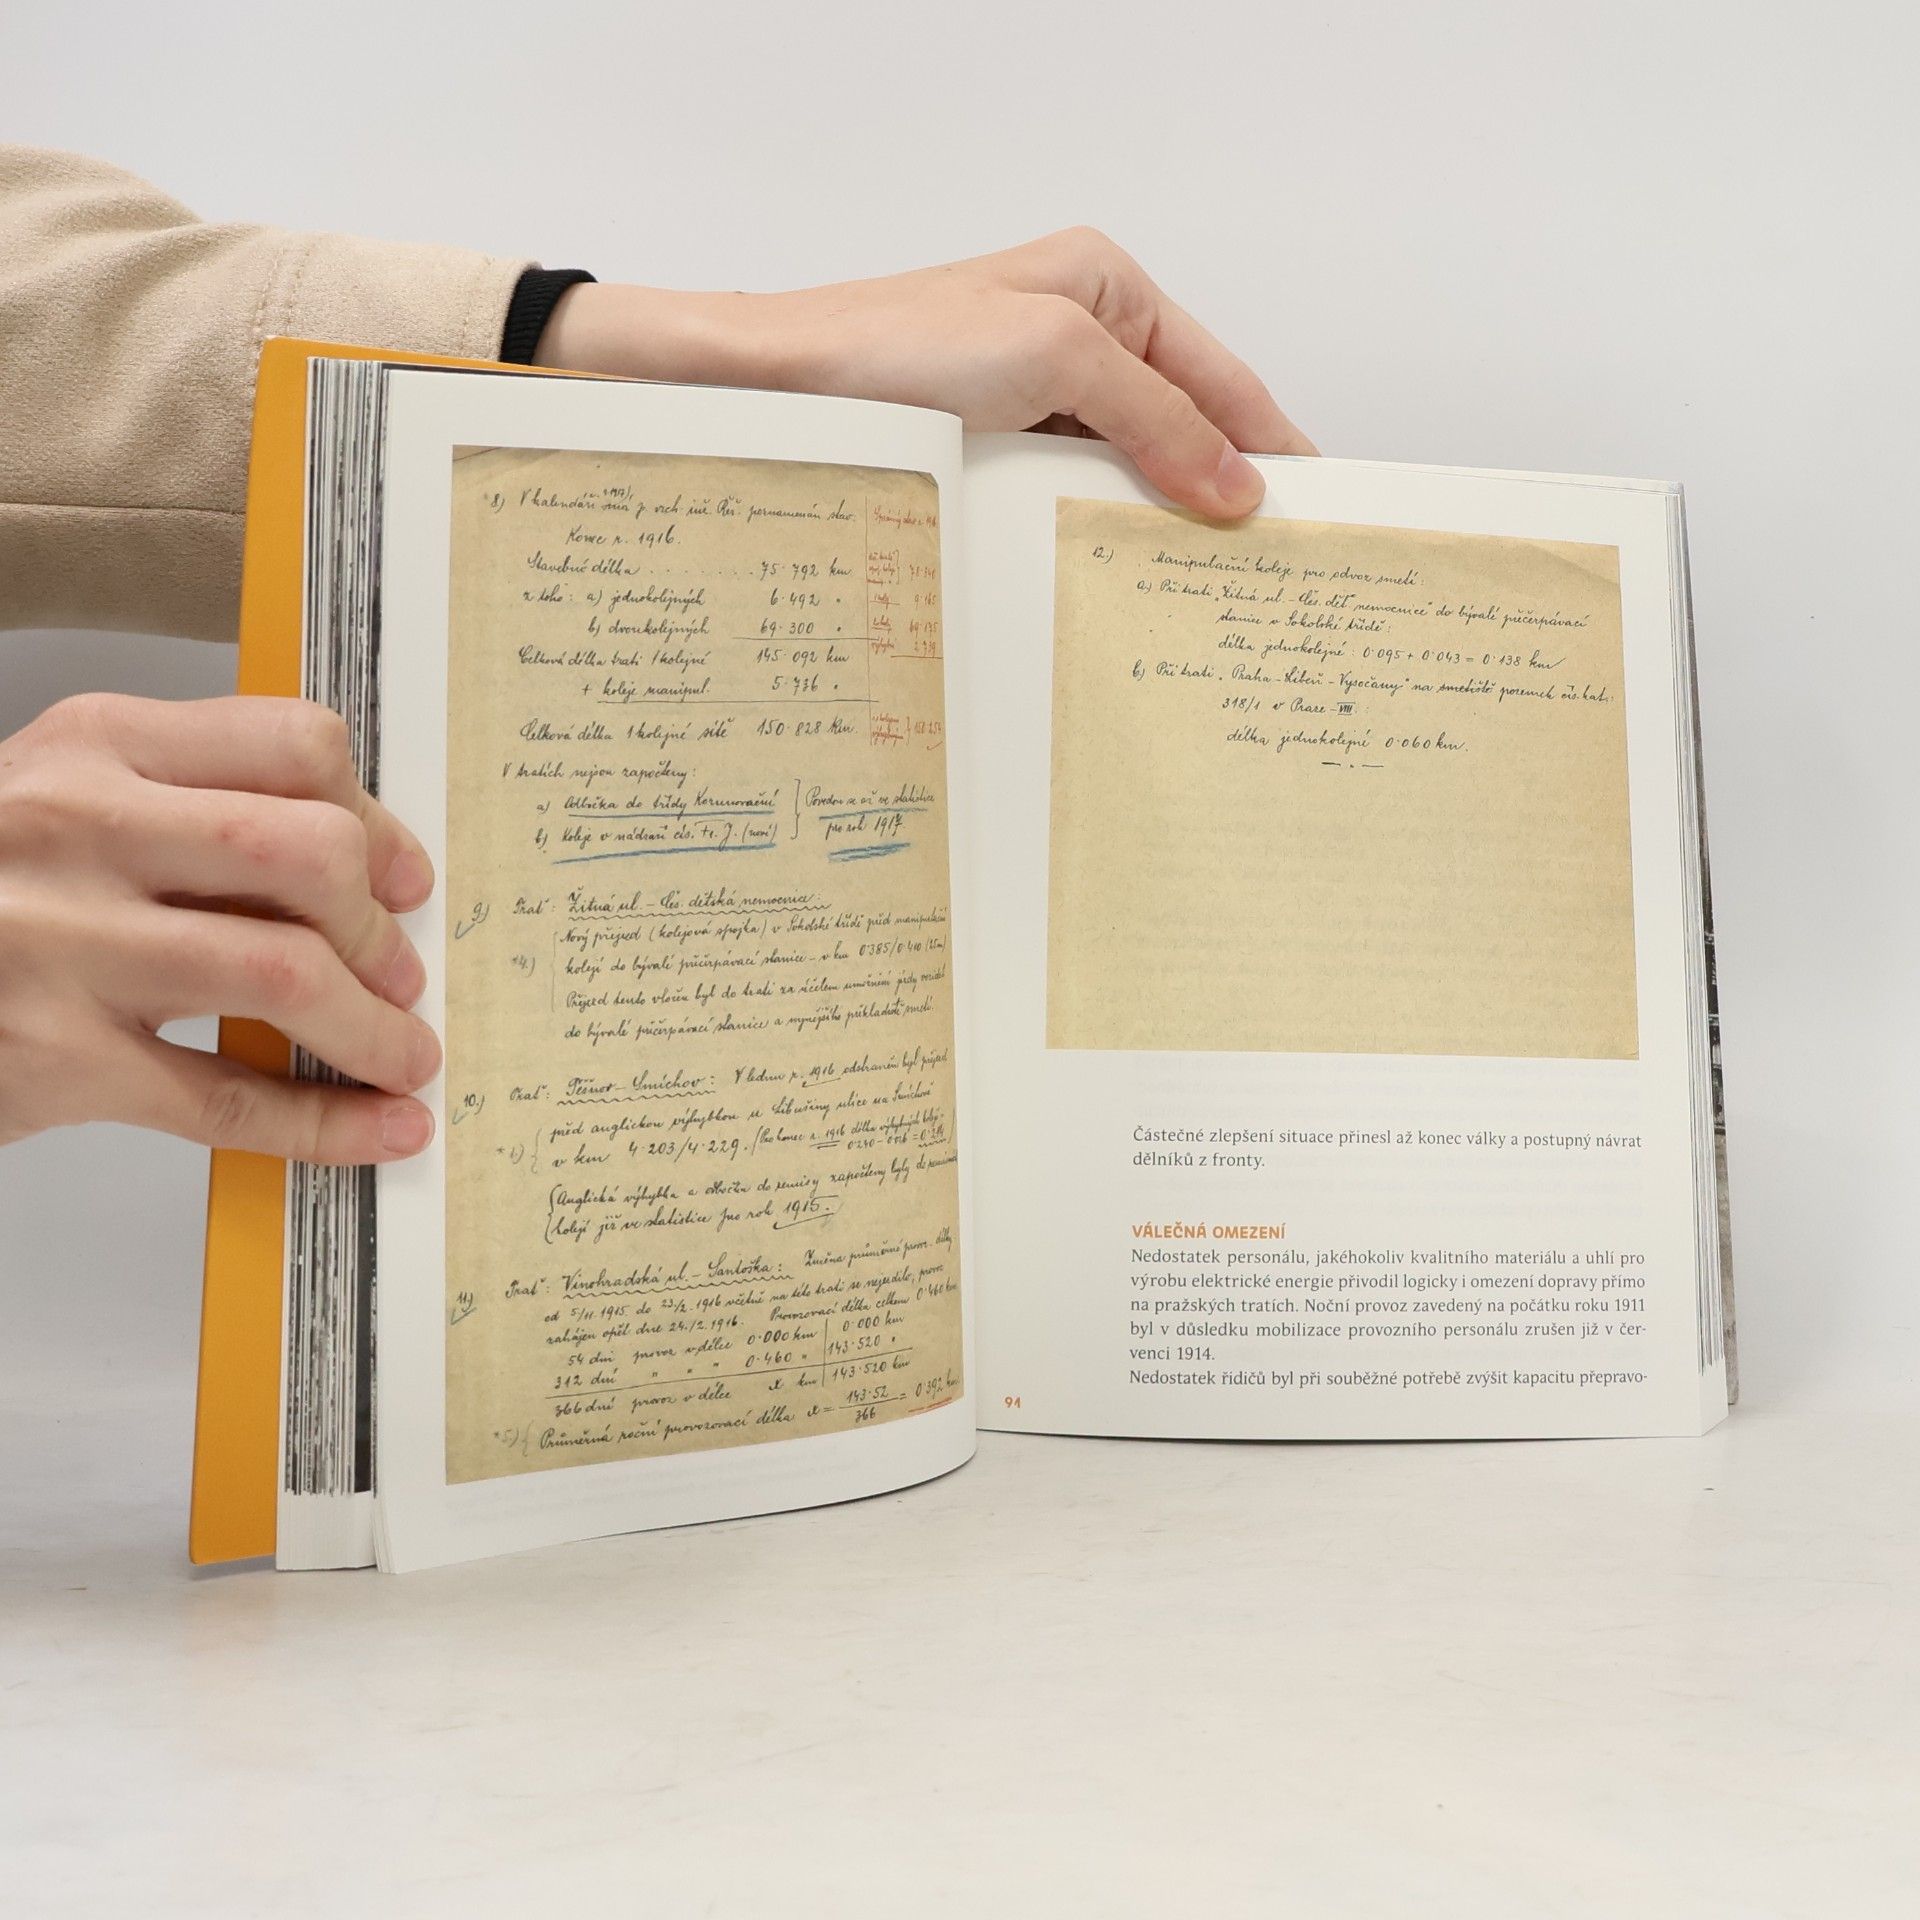 8) V kalendáři p. vrch. inž. poznamenán stav
Konec r. 1916.
Stavební délka . . . . . . . . 75·792 km
z toho: a) jednokolejných 6·492 "
b) dvoukolejných 69·300 "
Celková délka trati 1kolejné 145·092 km
+ koleje manipul. 5·736 "
Celková délka 1kolejné sítě 150·828 km.
V tratích nejsou započteny:
a) Odbočka do třídy Korunovační } Povedou se až ve statistice
b) Koleje v nádraží (nové) } pro rok 1917.
9.) Trať: Žitná ul. – Čes. dětská nemocnice:
Nový přejezd (kolejová spojka) v Sokolské třídě před manipulační
*4.) kolejí do bývalé přečerpávací stanice – v km 0·385/0·410 (25m)
Přejezd tento vložen byl do trati za účelem umožnění jízdy
do bývalé přečerpávací stanice a nynějšího překladiště smetí.
10.) Trať: Těšnov – Smíchov: V lednu r. 1916 odstraněn byl přejezd
před anglickou výhybkou u Libušiny ulice na Smíchově
v km 4·203/4·229. (Pro konec r. 1916 délka
(Anglická výhybka a odbočka do remisy započteny byly do
kolejí již ve statistice pro rok 1915.
11.) Trať: Vinohradská ul. – Santoška: Změna průměrné provoz. délky
od 5/11.1915. do 23/2.1916 včetně na této trati se nejezdilo, provoz
zahájen opět dne 24./2.1916. Provozovací délka celkem 0·460 km
54 dní provoz v délce 0·000 km 0·000 km
312 dní " " " 0·460 " 143·520 "
366 dní provoz v délce x km 143·520 km
*5.) Průměrná roční provozovací délka x = 143·52 / 366 = 0·392 km
12.) Manipulační koleje pro odvoz smetí:
a.) Při trati „Žitná ul. – Čes. dět. nemocnice" do bývalé přečerpávací
stanice v Sokolské třídě:
délka jednokolejné: 0·095 + 0·043 = 0·138 km
b.) Při trati „Praha – Libeň – Vysočany" na smetiště pozemek čís. kat.:
318/1 v Praze – VIII. :
délka jednokolejné 0·060 km.
Částečné zlepšení situace přinesl až konec války a postupný návrat
dělníků z fronty.
VÁLEČNÁ OMEZENÍ
Nedostatek personálu, jakéhokoliv kvalitního materiálu a uhlí pro
výrobu elektrické energie přivodil logicky i omezení dopravy přímo
na pražských tratích. Noční provoz zavedený na počátku roku 1911
byl v důsledku mobilizace provozního personálu zrušen již v čer-
venci 1914.
Nedostatek řidičů byl při souběžné potřebě zvýšit kapacitu přepravo-
91